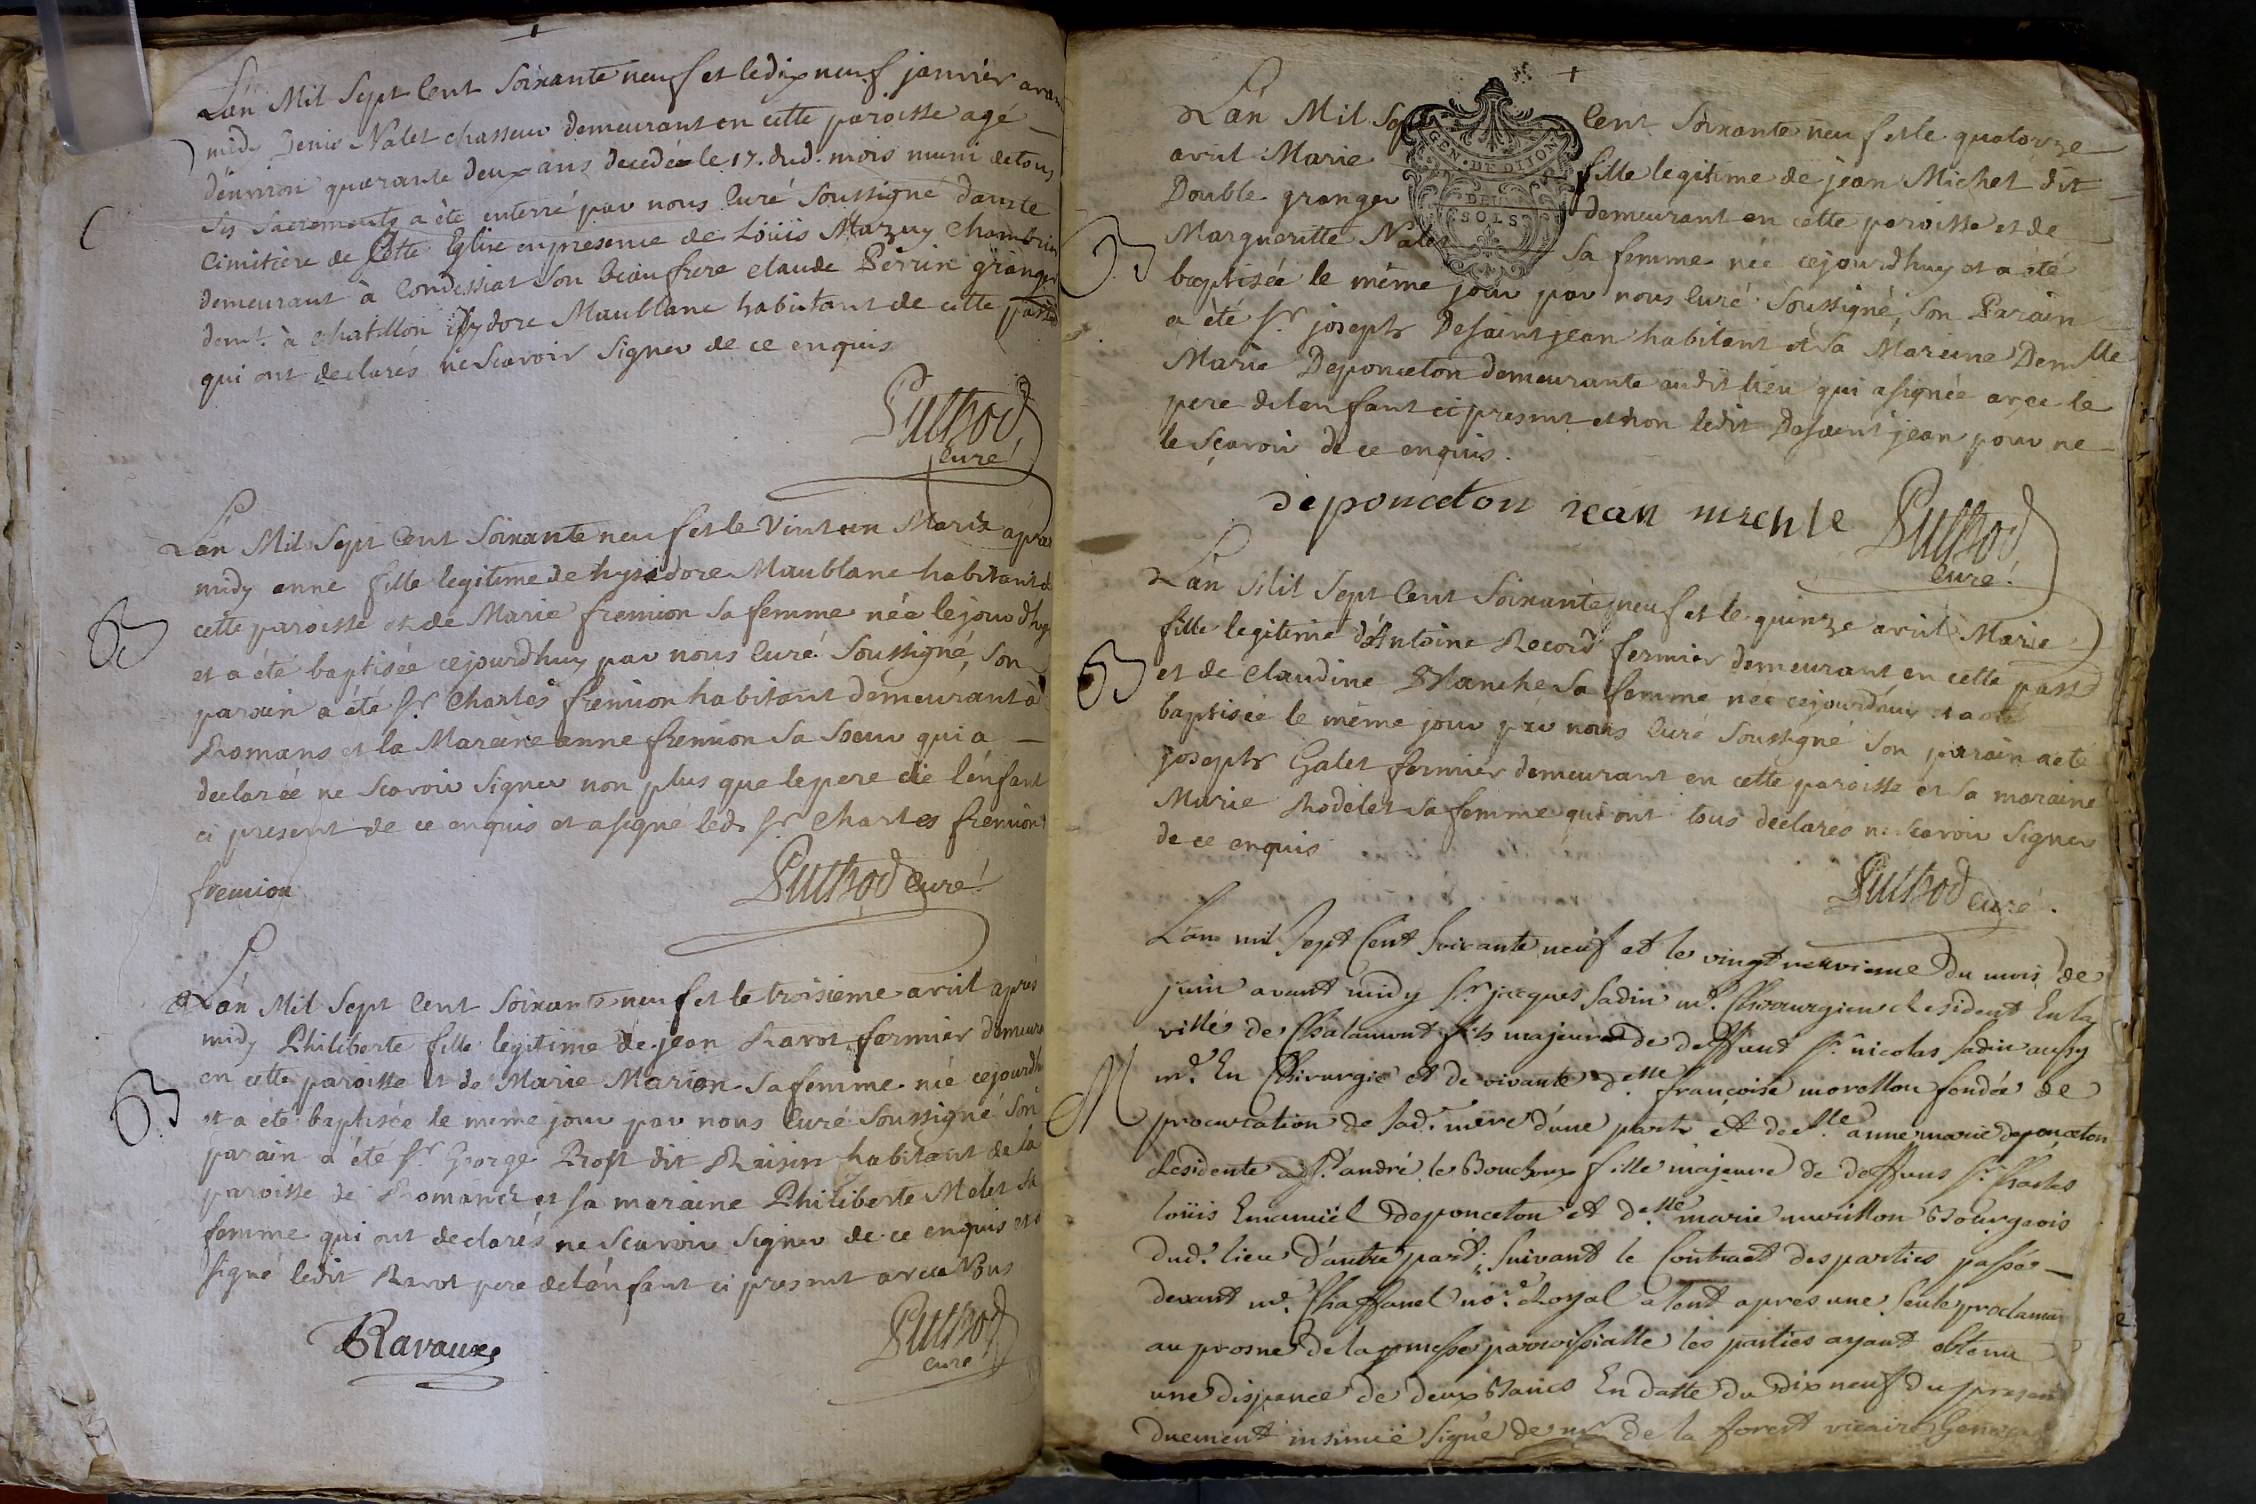 L'an Mil Sept Cent Soixante neuf et le dix neuf janvier avan
midy Denis Nalet chasseur demeurant en cette paroisse agé
d'environ quarante deux ans decedée le 17. dud. mois muni de tous
ses sacrements a été enterré par nous Curé Soussigné dans le
Cimitière de Cette Eglise en presence de Loüis Mazuy Chambrier
demeurant à Condessiat Son beaufrere Claude Perrin granger
demt. à Chatillon isydore Maublanc habitant de cette parsse
qui ont declarés ne Scavoir Signer de ce enquis
Puthod
Curé
L'an Mil Sept Cent Soixante neuf et le Vint un Marix aprés
midy anne fille legitime de hysidore Maublanc habitant de
cette paroisse et de Marie fremion Sa femme née lejourdhuy
et a été baptisée cejourdhuy par nous Curé Soussigné, Son
parain a été Sr. Charles fremion habitant demeurant à
Romans et la Maraine anne fremion Sa Soeur qui a
declarée ne Scavoir Signer non plus que le pere de l'enfant
ci present de ce enquis et a signé led. Sr Charles fremion
fremion Puthod Curé
L'an Mil Sept Cent Soixante neuf et le troisieme avril aprés
midy Philiberte fille legitime de jean Ravot fermier demeura
en cette paroisse et de Marie Marion Sa femme née cejourdh
et a été baptisée le meme jour par nous Curé Soussigné Son
parain a été Sr George Prost dit Raisin habitant de la
paroisse de Romans et sa maraine Philiberte Molet Sa
femme qui ont declarés ne Scavoir Signer de ce enquis et a
signé ledit Ravot pere de l'enfant ci present avec Nous
Ravaux Puthod
curé
L'an Mil Sept Cent Soixante neuf et le quatorze
GEN. DE DIJON
DEUX
SOLS
avril Marie fille legitime de jean Michel dit
Double granger demeurant en cette paroisse et de
Margueritte Nalet Sa femme née cejourdhuy et a été
baptisée le même jour par nous Curé Soussigné, Son Parain
a été Sr joseph Desaintjean habitant et Sa Maraine Demlle
Marie Deponceton demeurante audit lieu qui a signée avec le
pere de l'enfant ci present et non ledit Desaint jean pour ne
le Sçavoir de ce enquis.
deponceton jean michle Puthod
Curé
L'an Mil Sept Cent Soixante neuf et le quinze avril Marie
fille legitime d'Antoine Record fermier demeurant en cette parsse
et de Claudine Blanche Sa femme née cejourdhuy et a été
baptisée le même jour par nous Curé Soussigné Son parain a été
joseph Galet fermier demeurant en cette paroisse et Sa maraine
Marie Rodelet Sa femme qui ont tous declarés ne Scavoir Signer
de ce enquis
Puthod Curé.
L'an mil Sept Cent Soixante neuf et le vingt neuvieme du mois de
juin avant midy Sr. jacques Sadin me. Chirurgien Resident En la
ville de Chalamont fils majeur de deffunt Sr. nicolas Sadin aussy
me. En Chirurgie et de vivante delle. françoise morellon fondée de
procuration de sad. mere d'une part et delle. anne marie deponceton
Residente a St. andré le Bouchoux fille majeure de deffuns Sr. Charles
loüis Emanuël deponceton et delle marie murillon Bourgeois
dud. lieu d'autre part; Suivant le Contract des parties passé
devant me. Chaffanel nore. Royal a lent apres une Seule proclamaon
au prosne de la messe parroissialle les parties ayant obtenu
une dispence de deux Bancs En datte du dix neuf du present
duement insinuée Signé de mr de la forest vicaire General